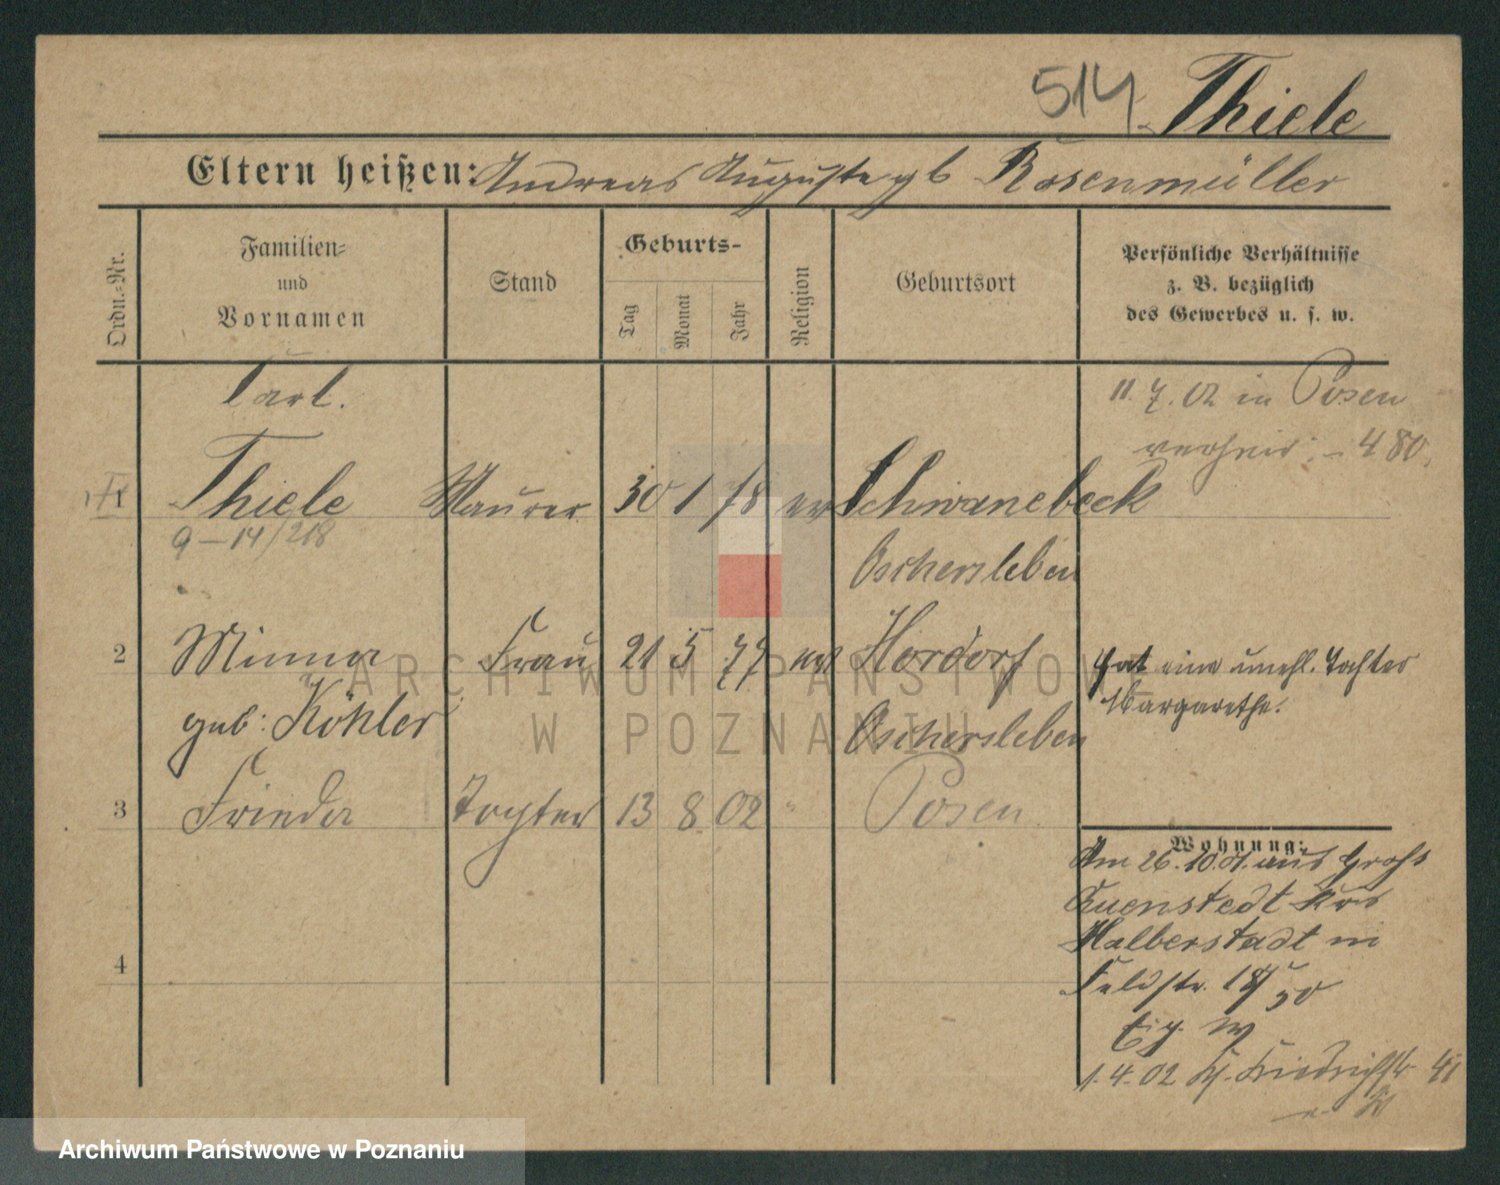 514 Thiele
Eltern heißen: Andreas Auguste gb Rosenmüller
Ordn.-Nr.
Familien-
und
Vornamen
Stand
Geburts-
Tag
Monat
Jahr
Religion
Geburtsort
Persönliche Verhältnisse
z. B. bezüglich
des Gewerbes u. s. w.
Carl.
11. 7. 02 in Posen
verheir. - 480.
1 Thiele Maurer 30 1 78 ev Schwanebeck
9-14/218
Oschersleben
2 Minna Frau 21 5 77 ev Hordorf
hat eine unehl. Tochter
Margarethe.
geb: Köhler
Oschersleben
3 Frieda Tochter 13 8 02 " Posen
Wohnung:
Am 26.10.01. aus Groß
Quenstedt Krs
Halberstadt in
Feldstr. 18
4
1.4.02 Friedrichstr. 41
ARCHIWUM PAŃSTWOWE
W POZNANIU
Archiwum Państwowe w Poznaniu